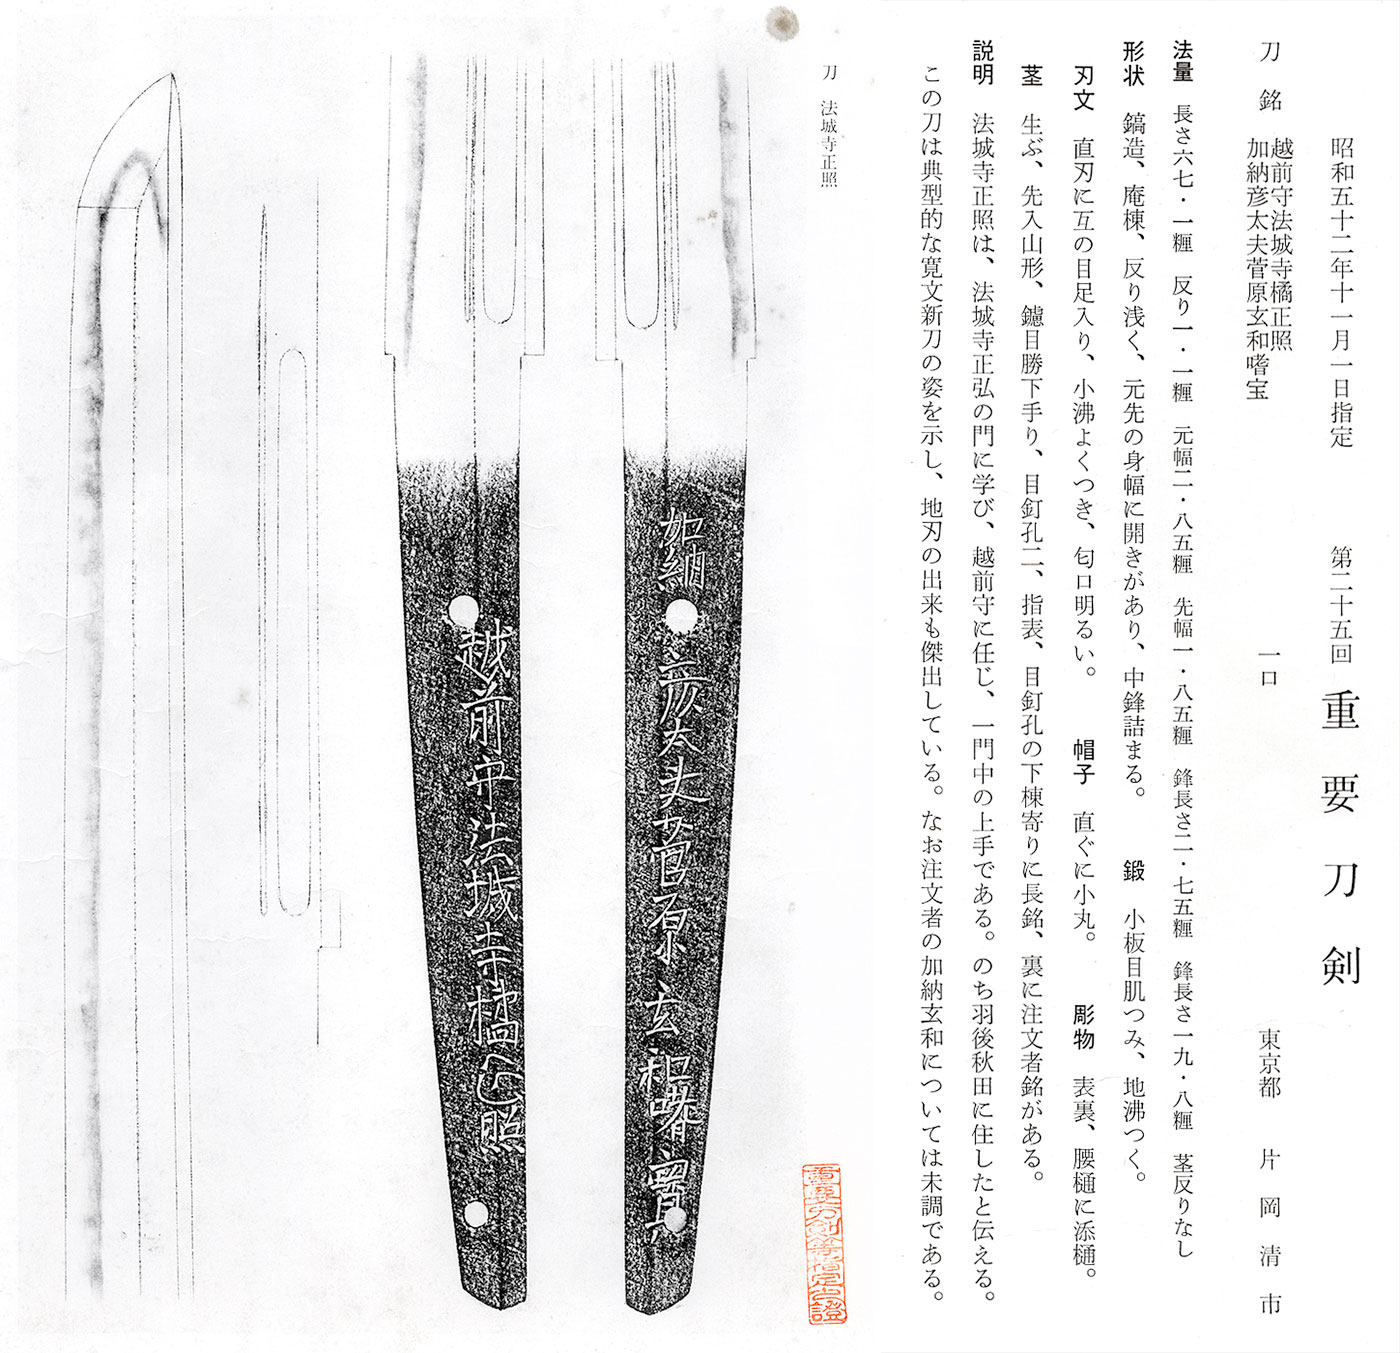 昭和五十二年十一月一日指定　第二十五回　重要刀剣
刀　銘　越前守法城寺橘正照
加納彦太夫菅原玄和嗜宝　一口　東京都　片岡清市
法量　長さ六七・一糎　反り一・一糎　元幅二・八五糎　先幅一・八五糎　鋒長さ二・七五糎　鋒長さ一九・八糎　茎反りなし
形状　鎬造、庵棟、反り浅く、元先の身幅に開きがあり、中鋒詰まる。　鍛　小板目肌つみ、地沸つく。
刃文　直刃に互の目足入り、小沸よくつき、匂口明るい。　帽子　直ぐに小丸。　彫物　表裏、腰樋に添樋。
茎　生ぶ、先入山形、鑢目勝下手り、目釘孔二、指表、目釘孔の下棟寄りに長銘、裏に注文者銘がある。
説明　法城寺正照は、法城寺正弘の門に学び、越前守に任じ、一門中の上手である。のち羽後秋田に住したと伝える。
この刀は典型的な寛文新刀の姿を示し、地刃の出来も傑出している。なお注文者の加納玄和については未調である。
刀　法城寺正照
加納彦太夫菅原玄和嗜寳
越前守法城寺橘正照
重要刀剣等指定之證